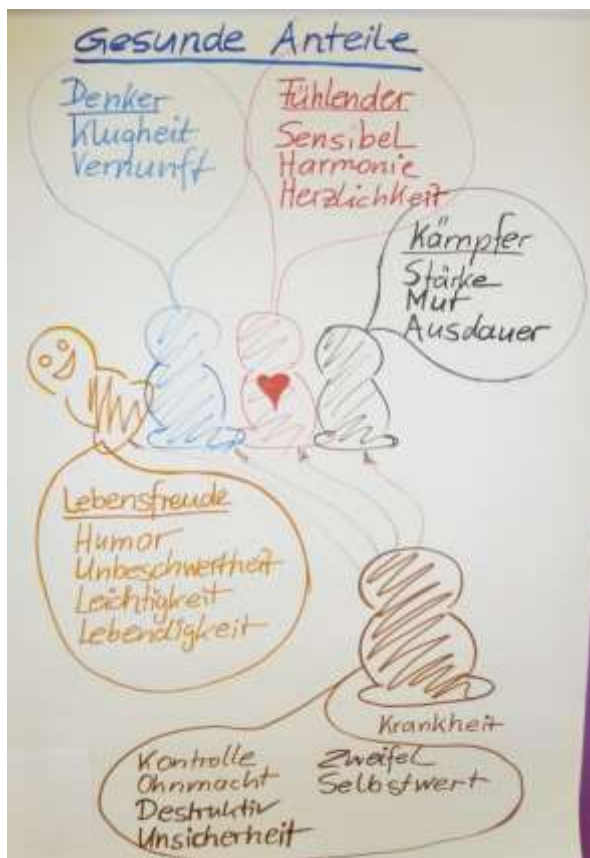 Gesunde Anteile
Denker
Klugheit
Vernunft
Fühlender
Sensibel
Harmonie
Herzlichkeit
Kämpfer
Stärke
Mut
Ausdauer
Lebensfreude
Humor
Unbeschwertheit
Leichtigkeit
Lebendigkeit
Krankheit
Kontrolle
Ohnmacht
Destruktiv
Unsicherheit
Zweifel
Selbstwert